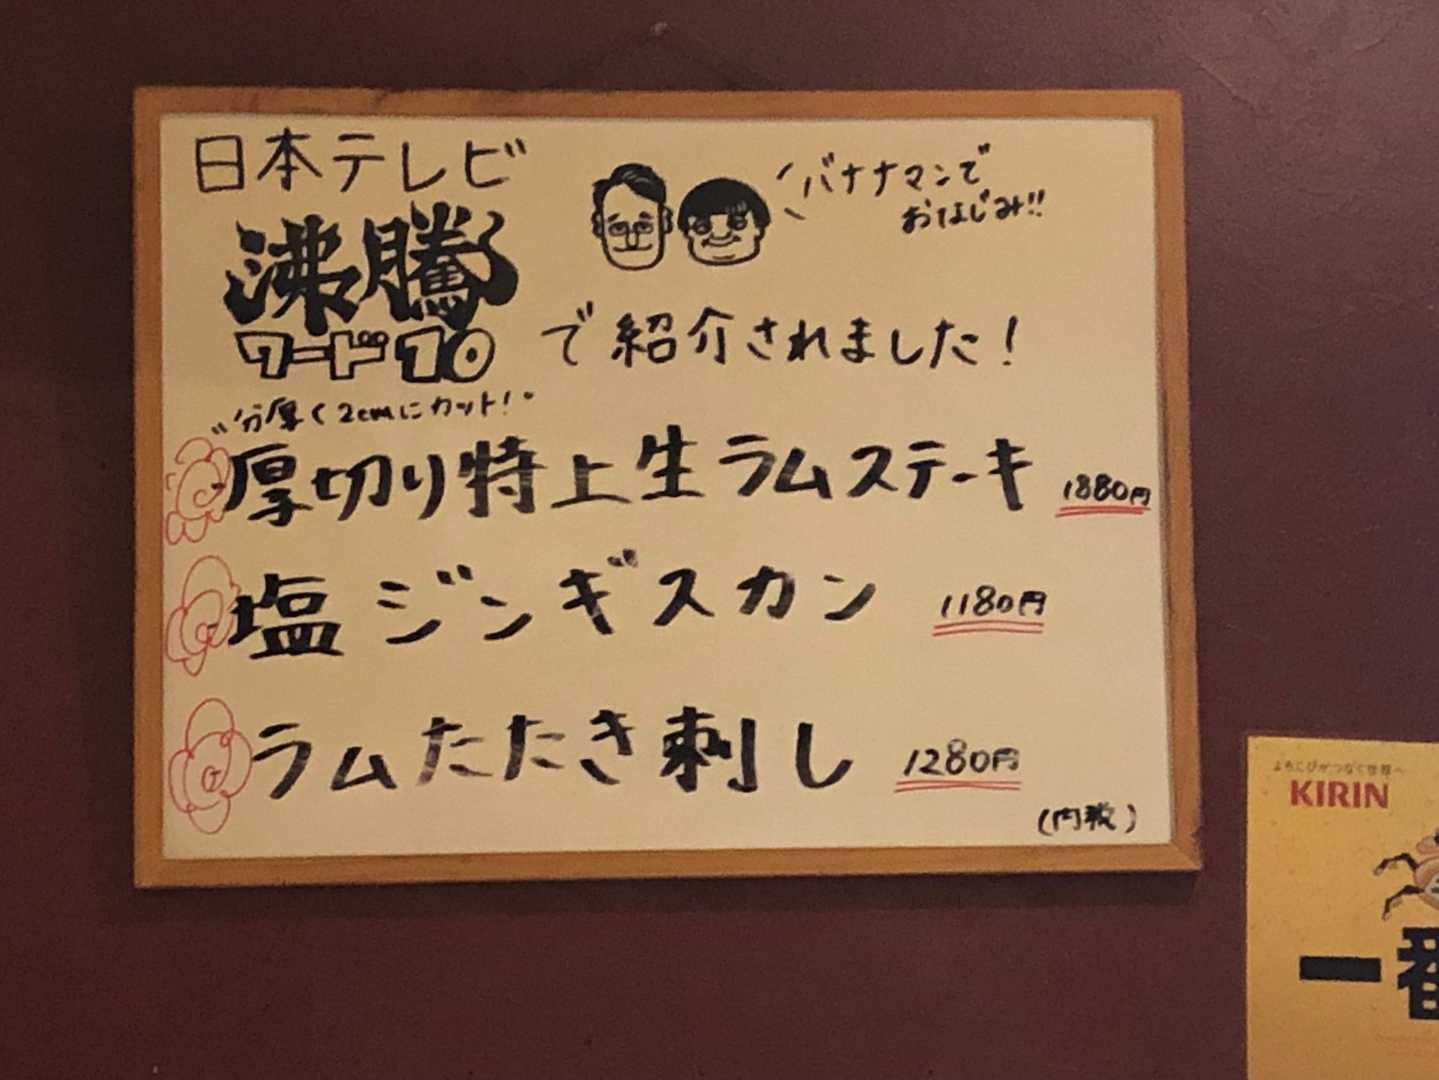 日本テレビ
バナナマンで
おなじみ!!
沸騰
ワード10
で紹介されました!
"分厚く2cmにカット!"
厚切り特上生ラムステーキ 1880円
塩ジンギスカン 1180円
ラムたたき刺し 1280円
(内税)
よろこびがつなぐ世界へ
KIRIN
一番